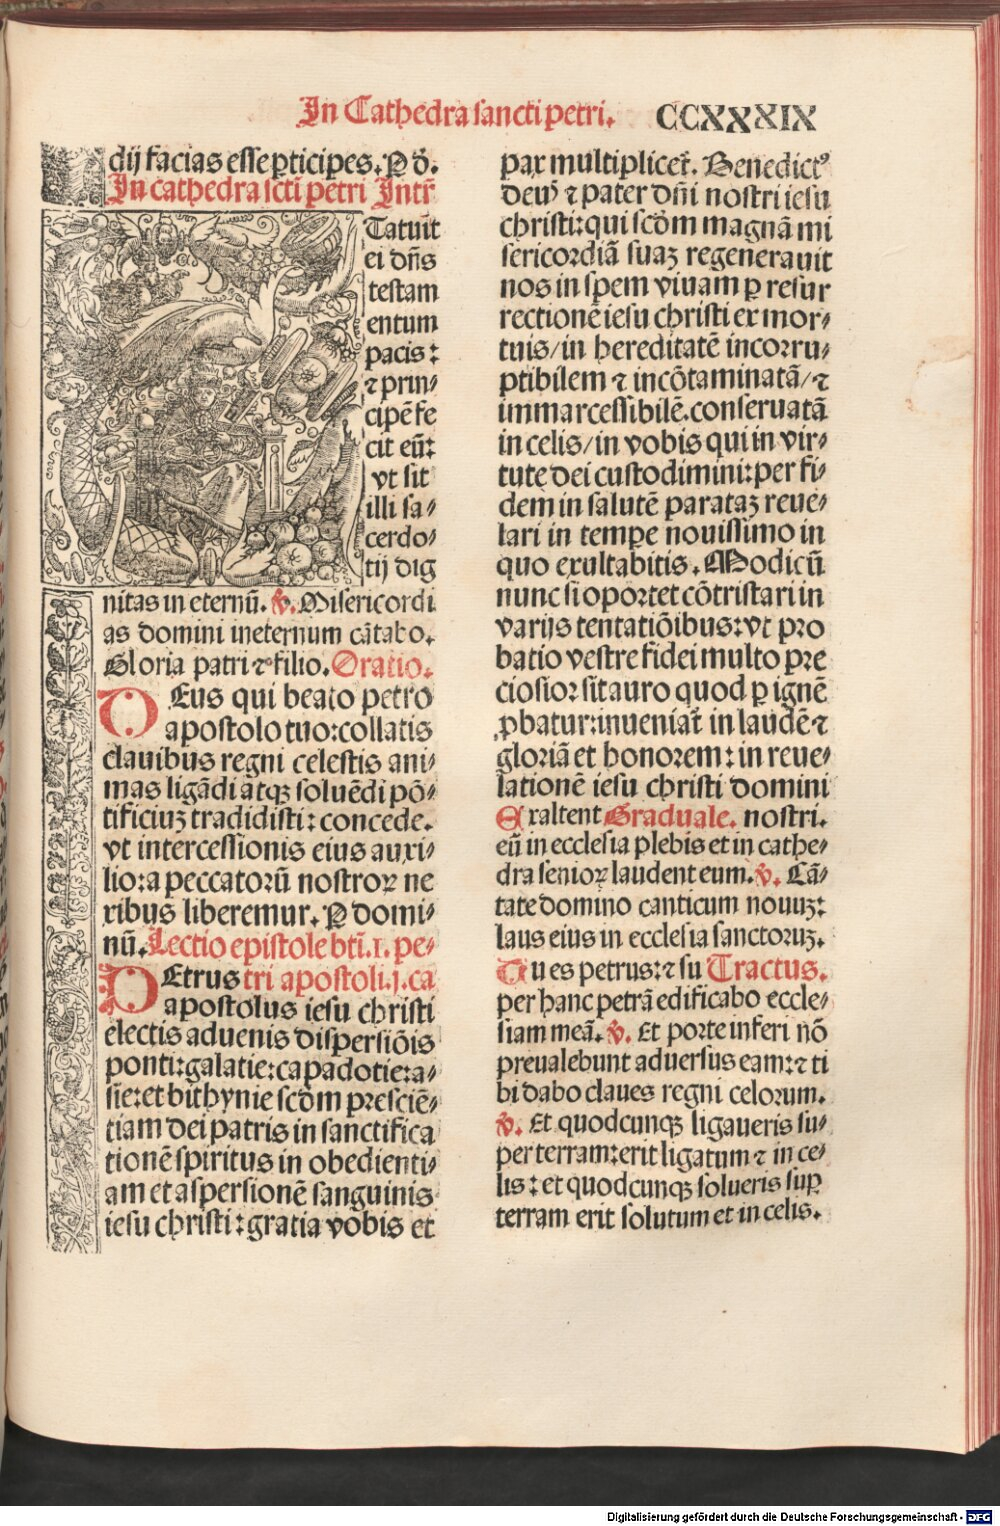 In Cathedra sancti petri. CCXXXIX
dij facias esse ꝑticipes. P dō.
In cathedra scti petri Intr̄
Tatuit
ei dn̄s
testam
entum
pacis:
⁊ prin⸗
cipē fe
cit eū:
vt sit
illi sa⸗
cerdo⸗
tij dig
nitas in eternū. ℣. Misericordi
as domini ineternum cātabo.
Gloria patri ⁊ filio. Oratio.
DEus qui beato petro
apostolo tuo: collatis
clauibus regni celestis ani⸗
mas ligādi atqꝫ soluēdi pō⸗
tificiuꝫ tradidisti: concede.
vt intercessionis eius auxi⸗
lio: a peccatorū nostroꝝ ne
xibus liberemur. P domi⸗
nū. Lectio epistole bti. 1. pe⸗
PEtrus tri apostoli. j. ca
apostolus iesu christi
electis aduenis dispersiōis
ponti: galatie: capadotie: a⸗
sie: et bithynie scd̄m presciē⸗
tiam dei patris in sanctifica
tionē spiritus in obedienti⸗
am et aspersionē sanguinis
iesu christi: gratia vobis et
pax multiplicet̄. Benedictꝰ
deus ⁊ pater dn̄i nostri iesu
christi: qui scd̄m magnā mi
sericordiā suaꝫ regenerauit
nos in spem viuam ꝑ resur
rectionē iesu christi ex mor⸗
tuis/ in hereditatē incorru⸗
ptibilem ⁊ incōtaminatā/ ⁊
immarcessibilē. conseruatā
in celis/ in vobis qui in vir⸗
tute dei custodimini: per fi⸗
dem in salutē parataꝫ reue⸗
lari in tempe nouissimo in
quo exultabitis. Modicū
nunc si oportet cōtristari in
varijs tentatiōibus: vt pro
batio vestre fidei multo pre
ciosior sit auro quod ꝑ ignē
ꝓbatur: inueniat̄ in laudē ⁊
gloriā et honorem: in reue⸗
lationē iesu christi domini
Exaltent Graduale. nostri.
eū in ecclesia plebis et in cathe⸗
dra senioꝝ laudent eum. ℣. Cā⸗
tate domino canticum nouuꝫ:
laus eius in ecclesia sanctoruꝫ.
Tu es petrus: ⁊ su Tractus.
per hanc petrā edificabo eccle⸗
siam meā. ℣. Et porte inferi nō
preualebunt aduersus eam: ⁊ ti
bi dabo claues regni celorum.
℣. Et quodcunqꝫ ligaueris su⸗
per terram: erit ligatum ⁊ in ce⸗
lis: et quodcunqꝫ solueris suꝑ
terram erit solutum et in celis.
Digitalisierung gefördert durch die Deutsche Forschungsgemeinschaft - DFG